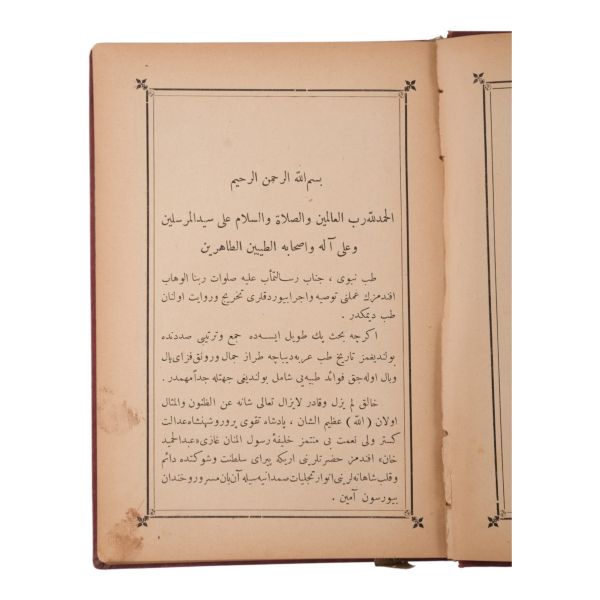 بسم الله الرحمن الرحيم
الحمدلله رب العالمين والصلاة والسلام على سيدالمرسلين
وعلى آله واصحابه الطيبين الطاهرين
طب نبوى ، جناب رسالتمآب عليه صلوات ربنا الوهاب
افندمزك عملنى توصيه واجرا بيوردقلرى تخريج وروايت اولنان
طب ديمكدر .
اكرچه بحث پك طويل ايسه ده جمع وترتيبى صددنده
بولنديغمز تاريخ طب عربه ديباچه طراز جمال ورونق فزاى يال
وبال اوله جق فوائد طبيه يى شامل بولنديغى جهتله جداً مهمدر .
خالق لم يزل وقادر لايزال تعالى شانه عن الظنون والمثال
اولان ( الله ) عظيم الشان ، پادشاه تقوى پرور وشهنشاه عدالت
كستر ولى نعمت بى منتمز خليفهٔ رسول المنان غازى « عبدالحميد
خان » افندمز حضرتلرينى اريكه پيراى سلطنت وشوكتنده دائم
وقلب شاهانه لرينى انوار تجليات صمدانيه سيله آن بان مسرور وخندان
بيورسون آمين .